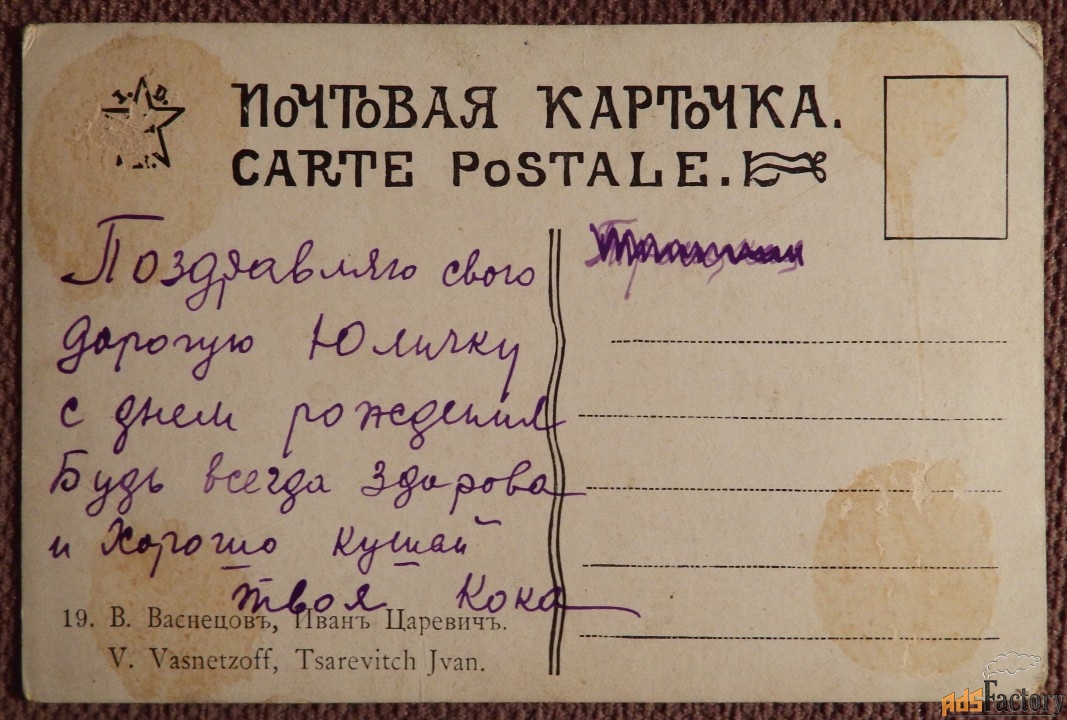 ПОЧТОВАЯ КАРТОЧКА.
CARTE POSTALE.
Поздравляю свого
дорогую Юличку
с днем рождения
Будь всегда здорова
и хорошо кушай
твоя Кока
19. В. Васнецовъ, Иванъ Царевичъ.
V. Vasnetzoff, Tsarevitch Jvan.
AdsFactory